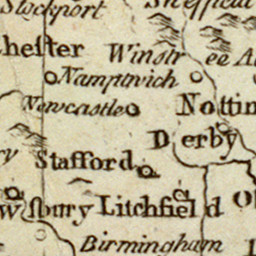 Stockport Sheffield
chester Winstr ee A
Namptwich
Newcastle Nottin
Derby
ry Stafford
wsbury Litchfield Ob
Birmingham